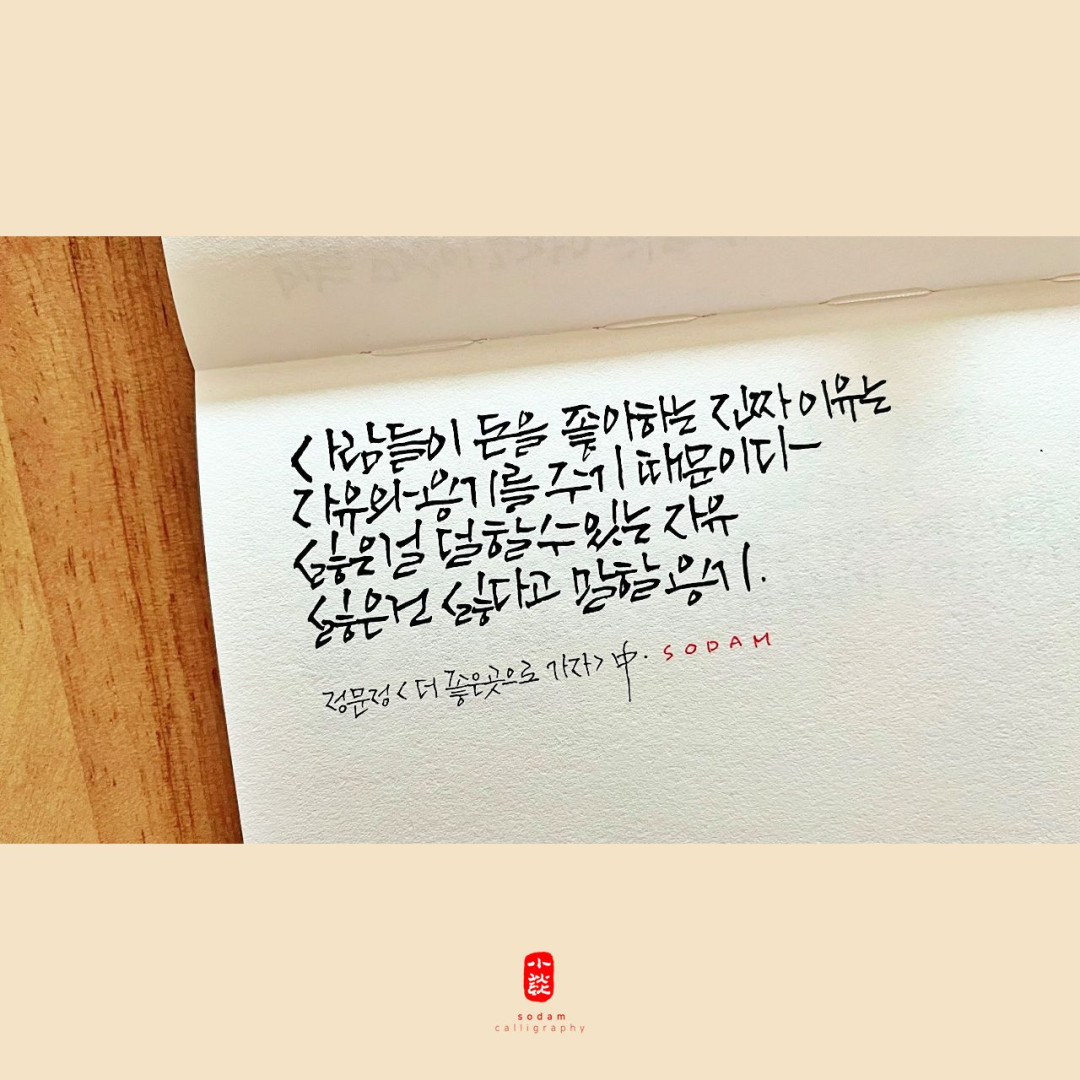 사람들이 돈을 좋아하는 진짜 이유는
자유와 용기를 주기 때문이다
싫은걸 덜할 수 있는 자유
싫은건 싫다고 말할 용기.
정문정 <더 좋은곳으로 가자> 中. SODAM
小談
sodam
calligraphy